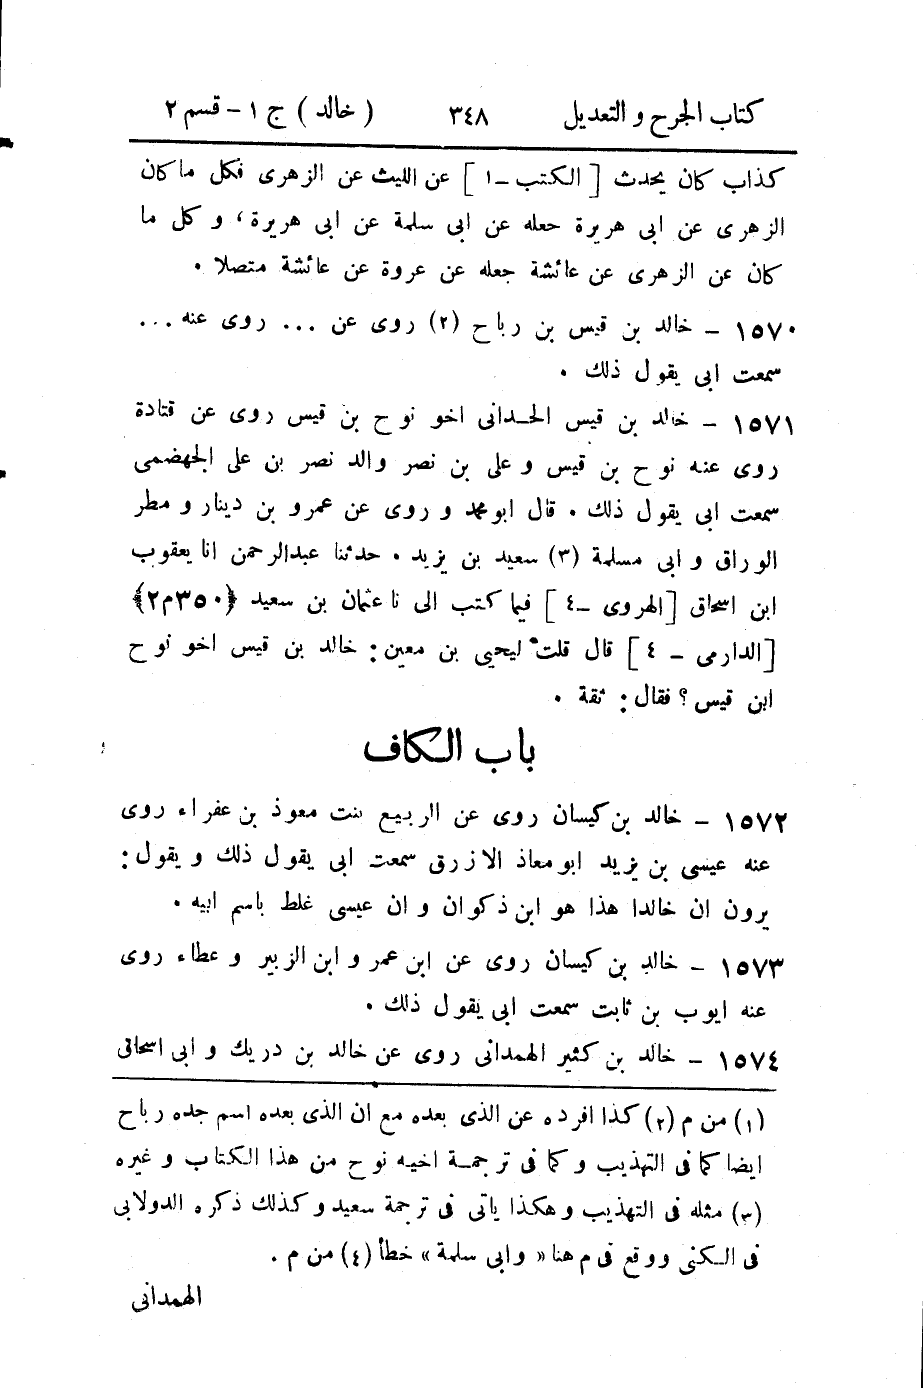 كتاب الجرح و التعديل ٣٤٨ ( خالد ) ج ١ - قسم ٢
كذاب كان يحدث [ الكتب -١ ] عن الليث عن الزهرى فكل ما كان
الزهرى عن ابى هريرة جعله عن ابى سلمة عن ابى هريرة ، و كل ما
كان عن الزهرى عن عائشة جعله عن عروة عن عائشة متصلا .
١٥٧٠ - خالد بن قيس بن رباح (٢) روى عن ... روى عنه ...
سمعت ابى يقول ذلك .
١٥٧١ - خالد بن قيس الحدانى اخو نوح بن قيس روى عن قتادة
روى عنه نوح بن قيس و على بن نصر والد نصر بن على الجهضمى
سمعت ابى يقول ذلك . قال ابو محمد و روى عن عمرو بن دينار و مطر
الوراق و ابى مسلمة (٣) سعيد بن يزيد . حدثنا عبدالرحمن انا يعقوب
ابن اسحاق [الهروى -٤ ] فيما كتب الى نا عثمان بن سعيد ﴿٣٥٠م٢﴾
[الدارمى - ٤ ] قال قلت ليحيى بن معين : خالد بن قيس اخو نوح
ابن قيس ؟ فقال : ثقة .
باب الكاف
١٥٧٢ - خالد بن كيسان روى عن الربيع بنت معوذ بن عفراء روى
عنه عيسى بن يزيد ابو معاذ الازرق سمعت ابى يقول ذلك و يقول :
يرون ان خالدا هذا هو ابن ذكوان و ان عيسى غلط باسم ابيه .
١٥٧٣ - خالد بن كيسان روى عن ابن عمر و ابن الزبير و عطاء روى
عنه ايوب بن ثابت سمعت ابى يقول ذلك .
١٥٧٤ - خالد بن كثير الهمدانى روى عن خالد بن دريك و ابى اسحاق
(١) من م (٢) كذا افرده عن الذى بعده مع ان الذى بعده اسم جده رباح
ايضا كما فى التهذيب و كما فى ترجمة اخيه نوح من هذا الكتاب و غيره
(٣) مثله فى التهذيب و هكذا ياتى فى ترجمة سعيد و كذلك ذكره الدولابى
فى الكنى و وقع فى م هنا « و ابى سلمة » خطأ (٤) من م .
الهمدانى